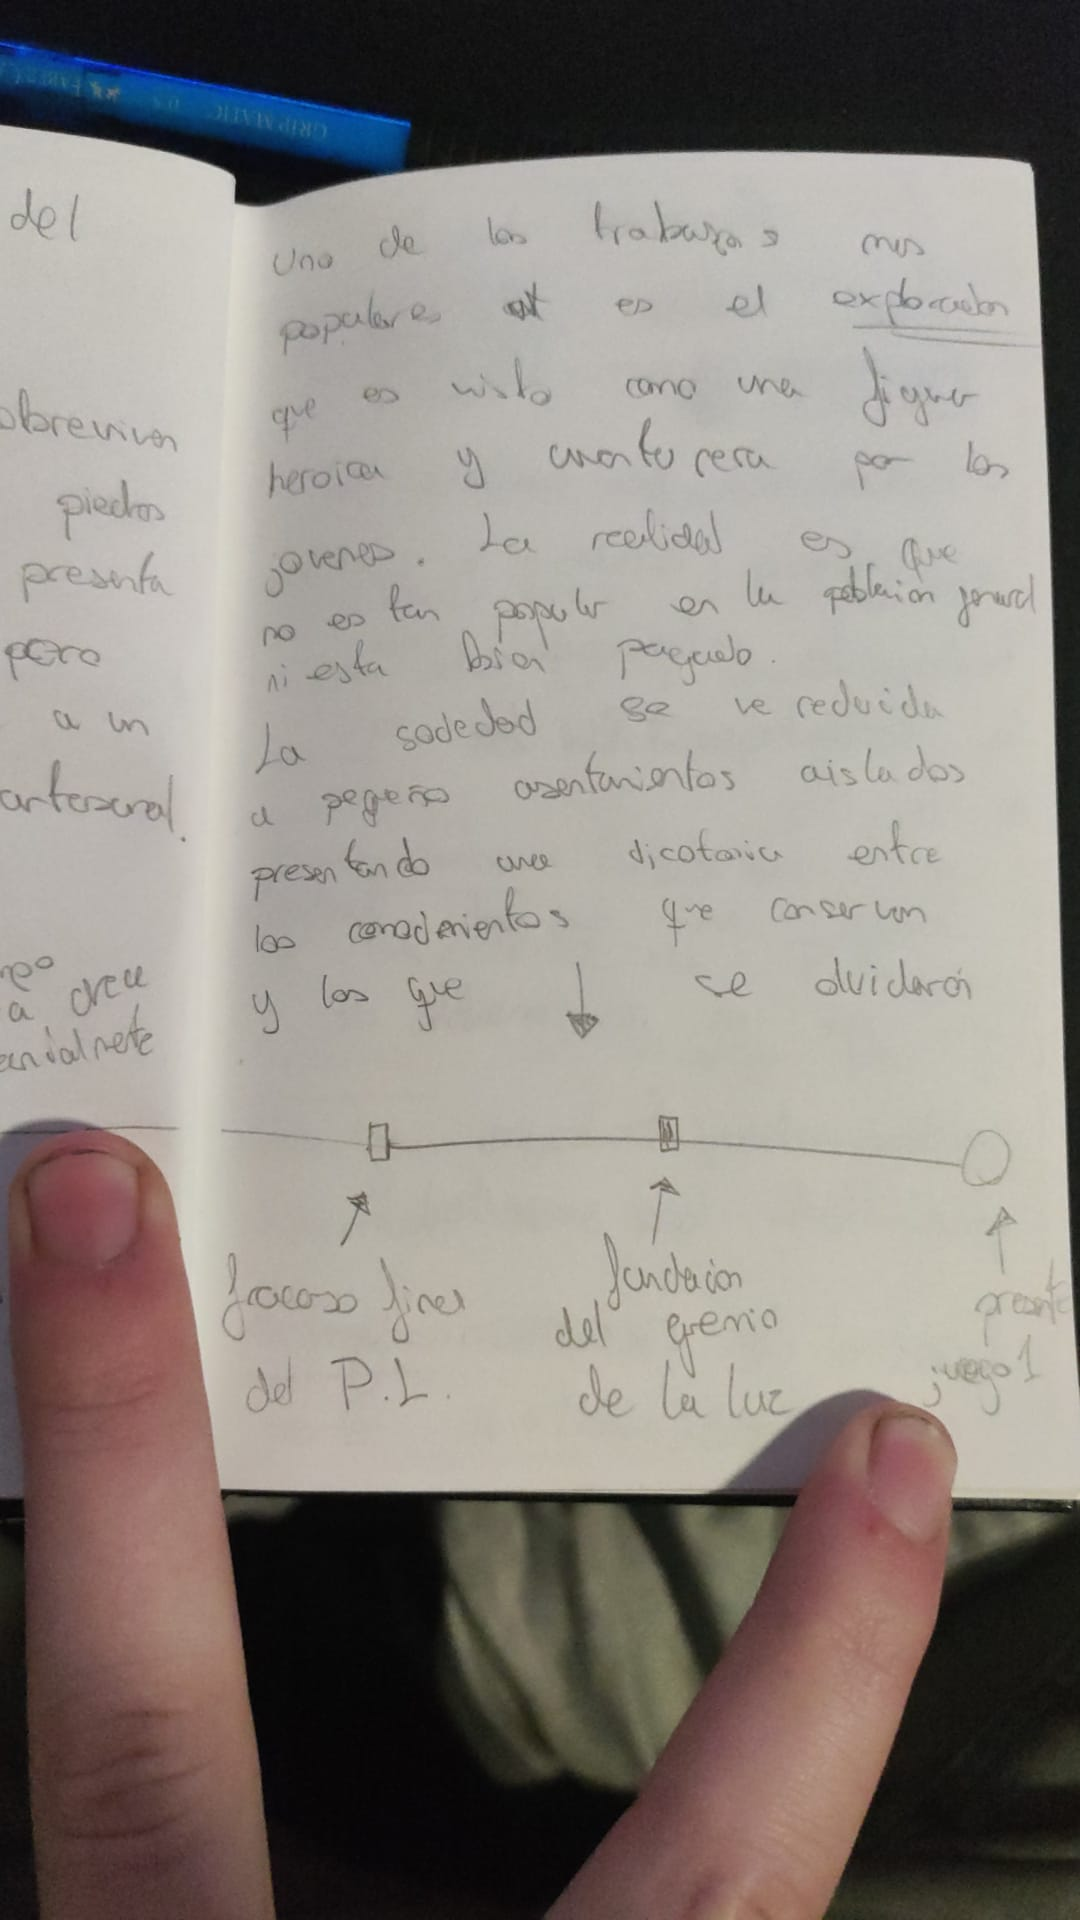 GRIP MATIC
del
obreviven
piedras
presenta
pero
a un
artesanal.
a crece
Uno de los trabajos mas
populares es el explorador
que es visto como una figura
heroica y aventurera por los
jovenes. La realidad es que
no es tan popular en la poblacion general
ni esta bien pagado.
La sociedad se ve reducida
a pequeños asentamientos aislados
presentando una dicotomia entre
los conocimientos que conservan
y los que se olvidaron
fracaso final
del P.L.
fundacion
del gremio
de la luz
presente
juego 1